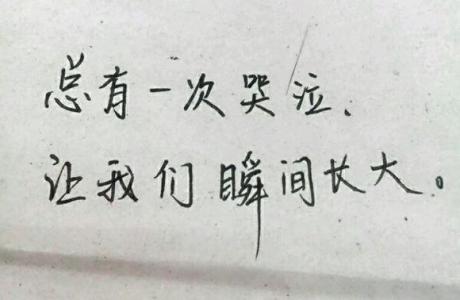 总有一次哭泣、
让我们瞬间长大。